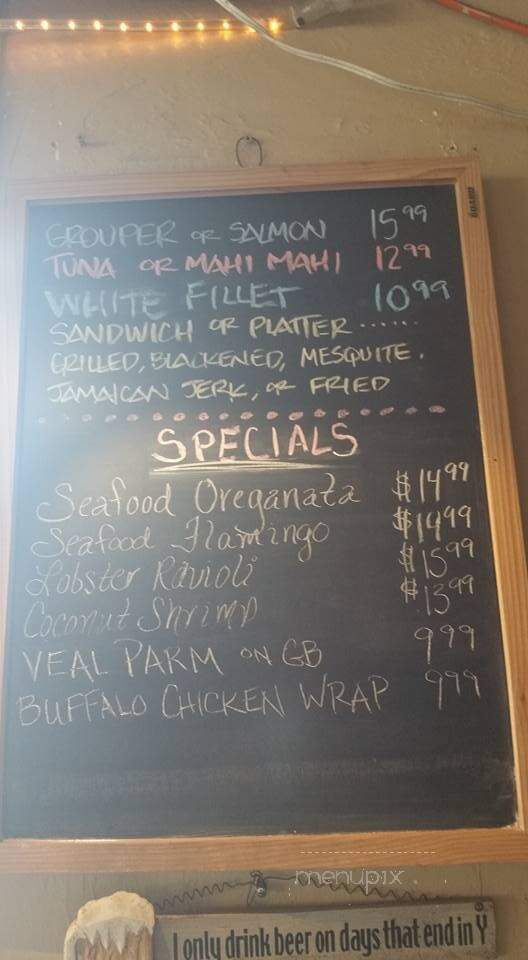 GROUPER OR SALMON 15 99
TUNA OR MAHI MAHI 12 99
WHITE FILLET 10 99
SANDWICH OR PLATTER ......
GRILLED, BLACKENED, MESQUITE.
JAMAICAN JERK, OR FRIED
SPECIALS
Seafood Oreganata $14 99
Seafood Flamingo $14 99
Lobster Ravioli $15 99
Coconut Shrimp $13 99
VEAL PARM ON GB 9 99
BUFFALO CHICKEN WRAP 9 99
menupix
I only drink beer on days that end in Y